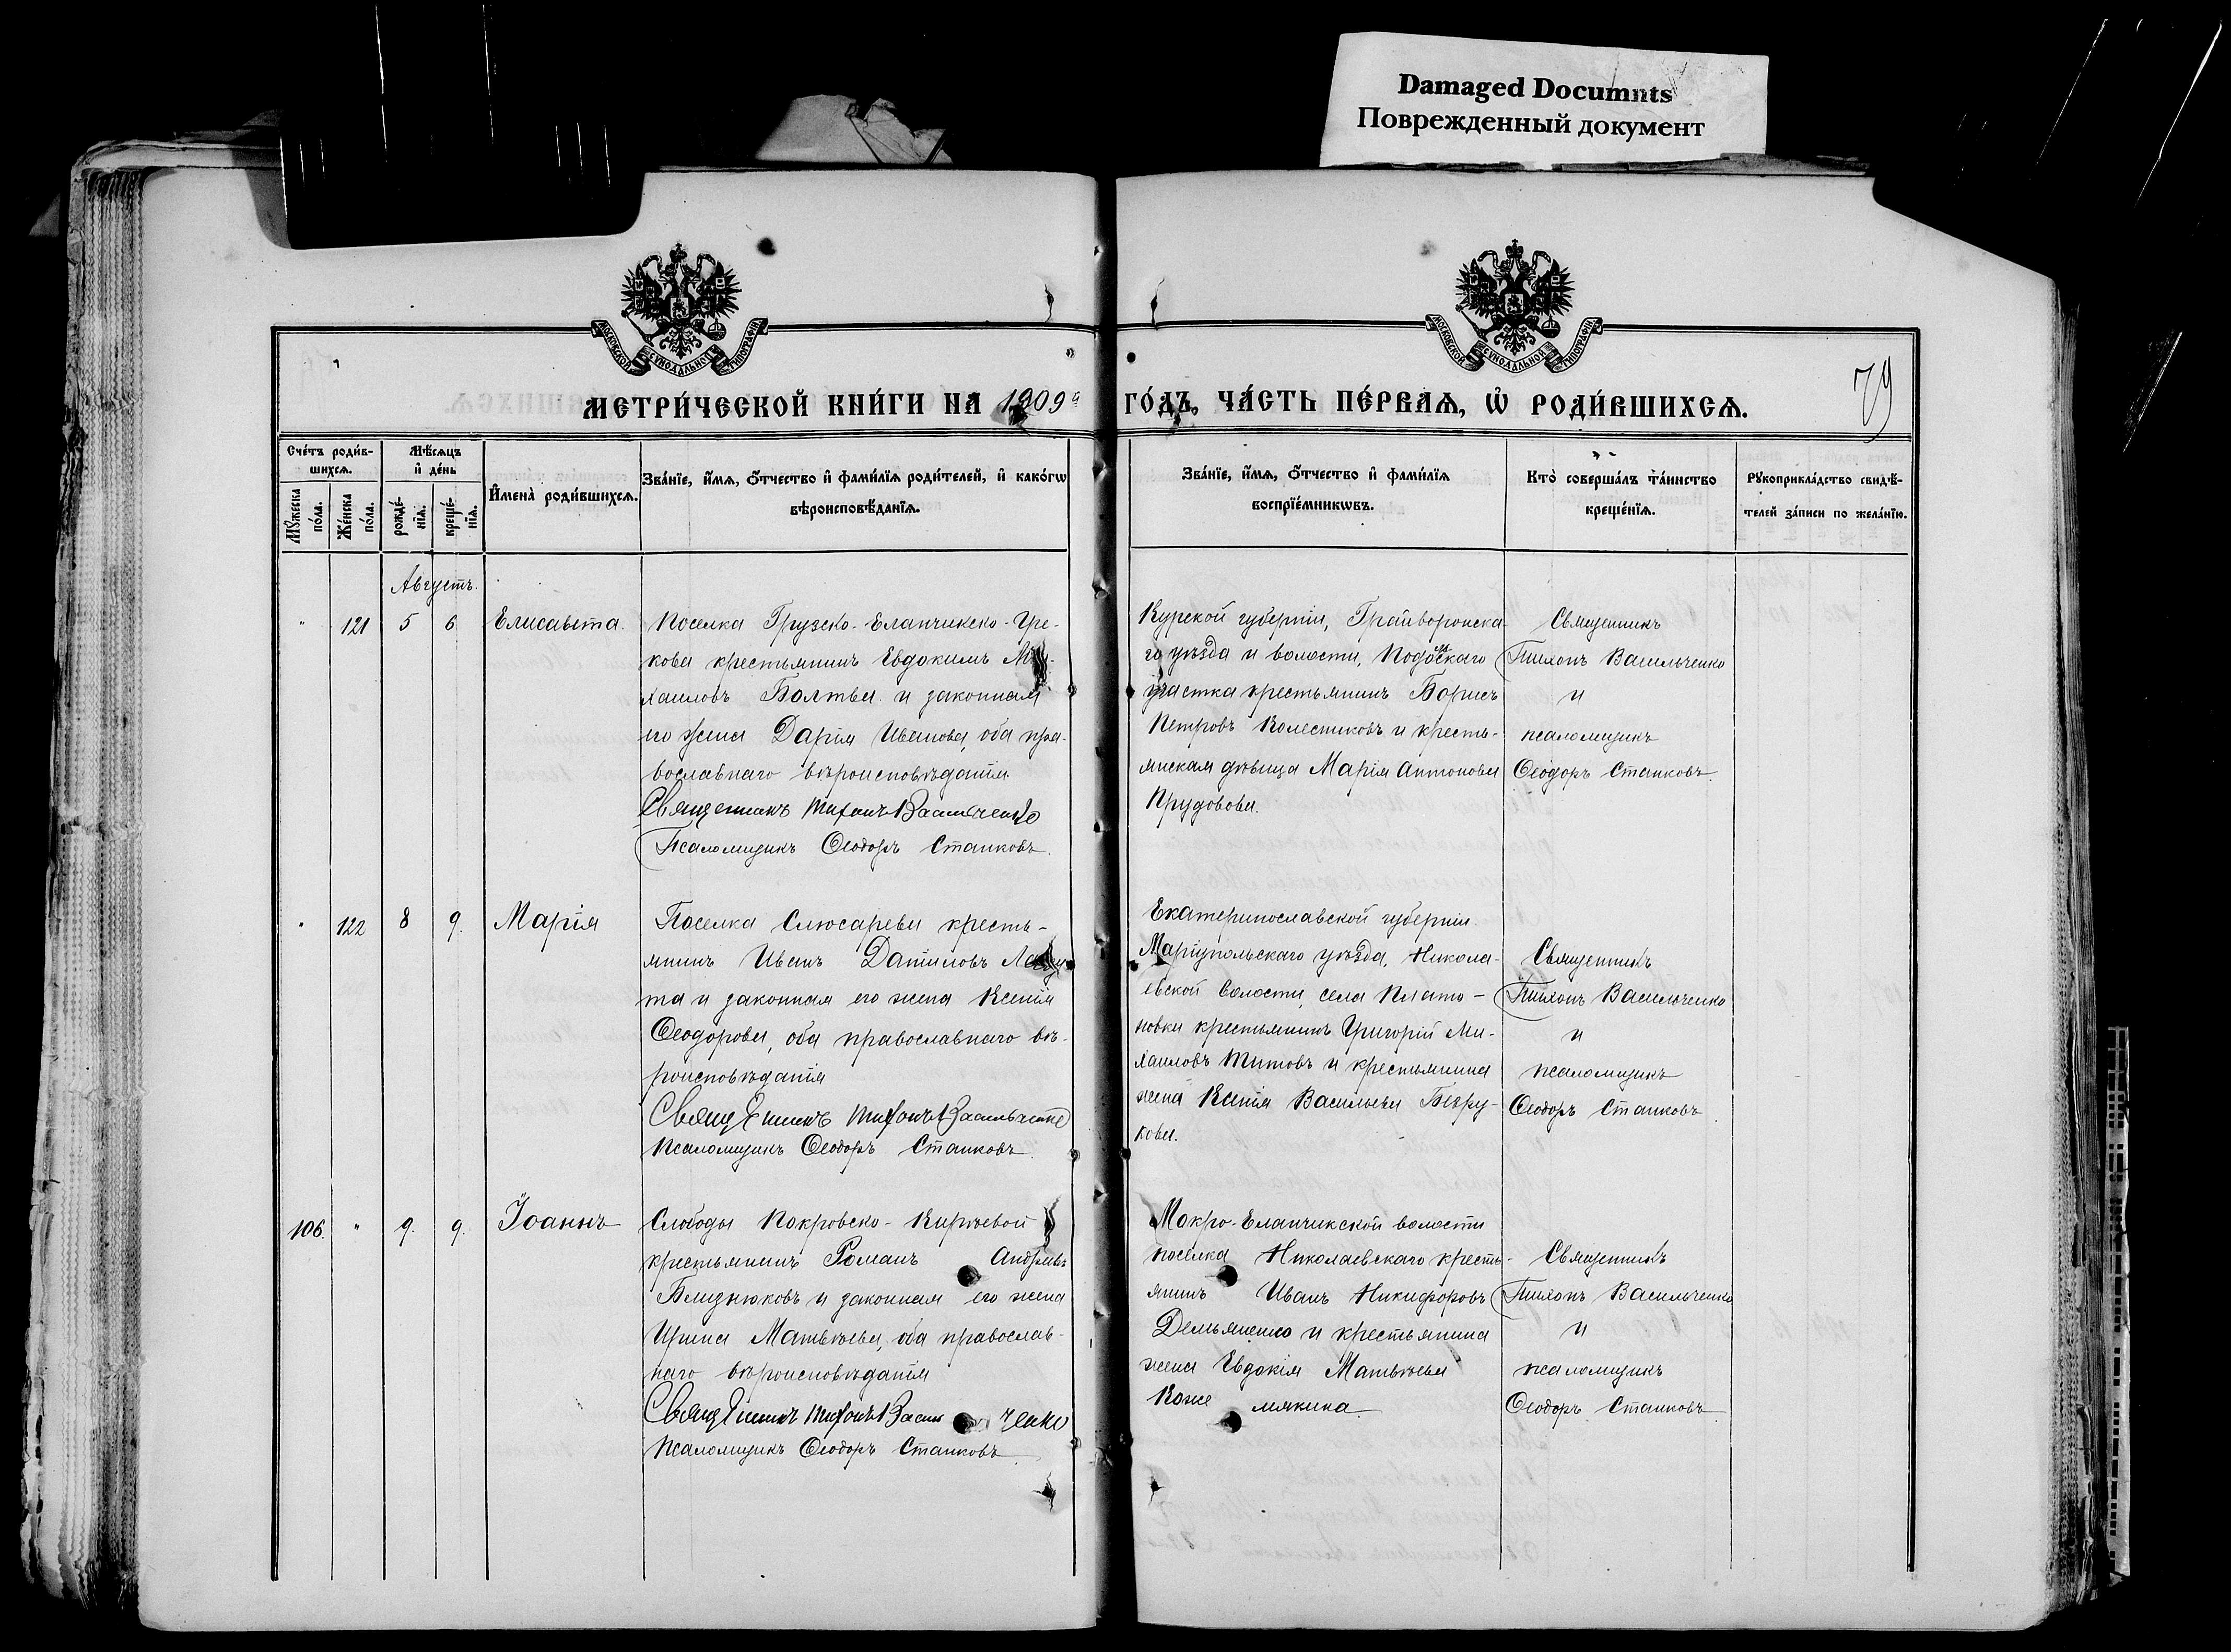 Damaged Documnts
Поврежденный документ
МОСКОВСКОЙ СѴНОДАЛЬНОЙ ТИПОГРАФІИ
МОСКОВСКОЙ СѴНОДАЛЬНОЙ ТИПОГРАФІИ
79
МЕТРИ́ЧЕСКОЙ КНИ́ГИ НА 1909 ГО́ДЪ, ЧА́СТЬ ПЕ́РВАѦ, Ѡ҆ РОДИ́ВШИХСѦ.
Сче́тъ роди́в-
шихсѧ.
Мꙋ́жеска по́ла.
Же́нска по́ла.
Мѣ́сѧцъ и҆ де́нь
рожде́-нїѧ.
креще́-нїѧ.
И҆мена̀ роди́вшихсѧ.
Зва́нїе, и҆́мѧ, ѻ҆́тчество и҆ фами́лїѧ роди́телей, и҆ како́гѡ
вѣроисповѣ́данїѧ.
Зва́нїе, и҆́мѧ, ѻ҆́тчество и҆ фами́лїѧ
воспрїе́мникѡвъ.
Кто̀ соверша́лъ та́инство
креще́нїѧ.
Рꙋкоприкла́дство свидѣ́-
телей за́писи по жела́нїю.
Августъ.
" 121 5 6 Елисавета.
Поселка Грузско-Еланчикско-Гре-
кова крестьянинъ Евдокимъ Ми-
хаиловъ Болтва и законная
его жена Дарія Иванова, оба пра-
вославнаго вѣроисповѣданія
Священникъ Тихонъ Васильченко
Псаломщикъ Ѳеодоръ Станковъ.
Курской губерніи, Грайворонска-
го уѣзда и волости,
участка крестьянинъ Борисъ
Петровъ Колесниковъ и кресть-
янская дѣвица Марія Антонова
Прудовова.
Священникъ
Тихонъ Васильченко
и
псаломщикъ
Ѳеодоръ Станковъ.
" 122 8 9. Марія
Поселка Слюсарева кресть-
янинъ Иванъ Даниловъ
та и законная его жена Ксенія
Ѳеодорова, оба православнаго вѣ-
роисповѣданія
Священникъ Тихонъ Васильченко
Псаломщикъ Ѳеодоръ Станковъ.
Екатеринославской губерніи
Маріупольскаго уѣзда, Никола-
евской волости, села Плато-
новки крестьянинъ Григорій Ми-
хаиловъ Титовъ и крестьянина
жена Ксенія Васильева Бѣзру-
кова.
Священникъ
Тихонъ Васильченко
и
псаломщикъ
Ѳеодоръ Станковъ.
106. " 9. 9. Іоаннъ
Слободы Покровско-Кирѣевой
крестьянинъ Романъ Андреевъ
Близнюковъ и законная его жена
Ирина Матвѣева, оба православ-
наго вѣроисповѣданія
Священникъ Тихонъ Васильченко
Псаломщикъ Ѳеодоръ Станковъ.
Мокро-Еланчикской волости
поселка Николаевскаго кресть-
янинъ Иванъ Никифоровъ
Демьяненко и крестьянина
жена Евдокія Матвѣева
Кожемякина.
Священникъ
Тихонъ Васильченко
и
псаломщикъ
Ѳеодоръ Станковъ.